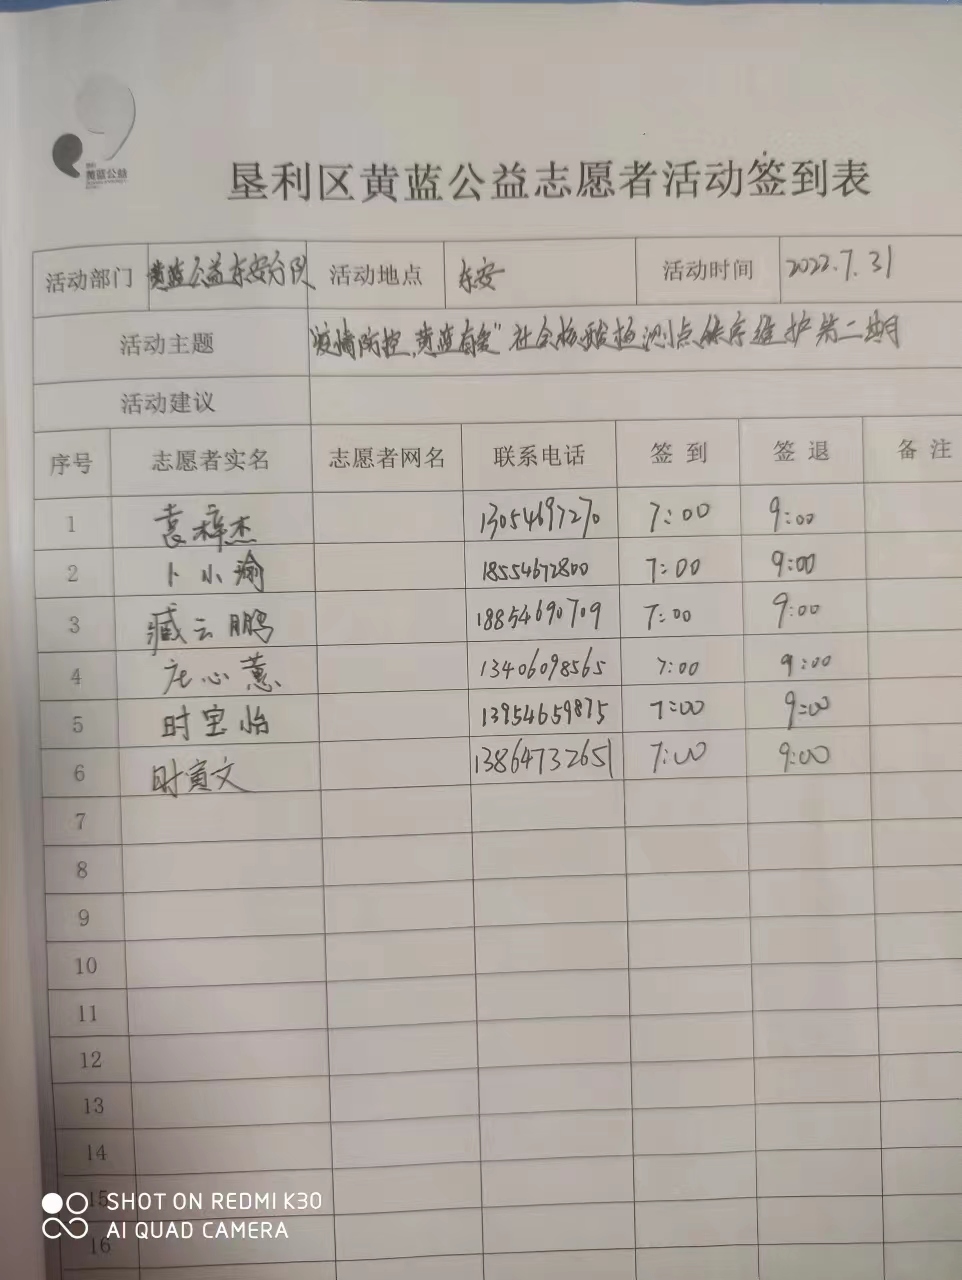 黄蓝公益
垦利区黄蓝公益志愿者活动签到表
活动部门 黄蓝公益东安分队 活动地点 东安 活动时间 2022.7.31
活动主题 "疫情防控,黄蓝有爱"社会核酸检测点秩序维护第二期
活动建议
序号 志愿者实名 志愿者网名 联系电话 签到 签退 备注
1 袁梓杰 13054697270 7:00 9:00
2 卜小瑜 18554672800 7:00 9:00
3 臧云鹏 18854690709 7:00 9:00
4 庄心蕙 13406098565 7:00 9:00
5 时宝怡 13954659875 7:00 9:00
6 时寅文 13864732651 7:00 9:00
7
8
9
10
11
12
13
14
15
16
SHOT ON REDMI K30
AI QUAD CAMERA